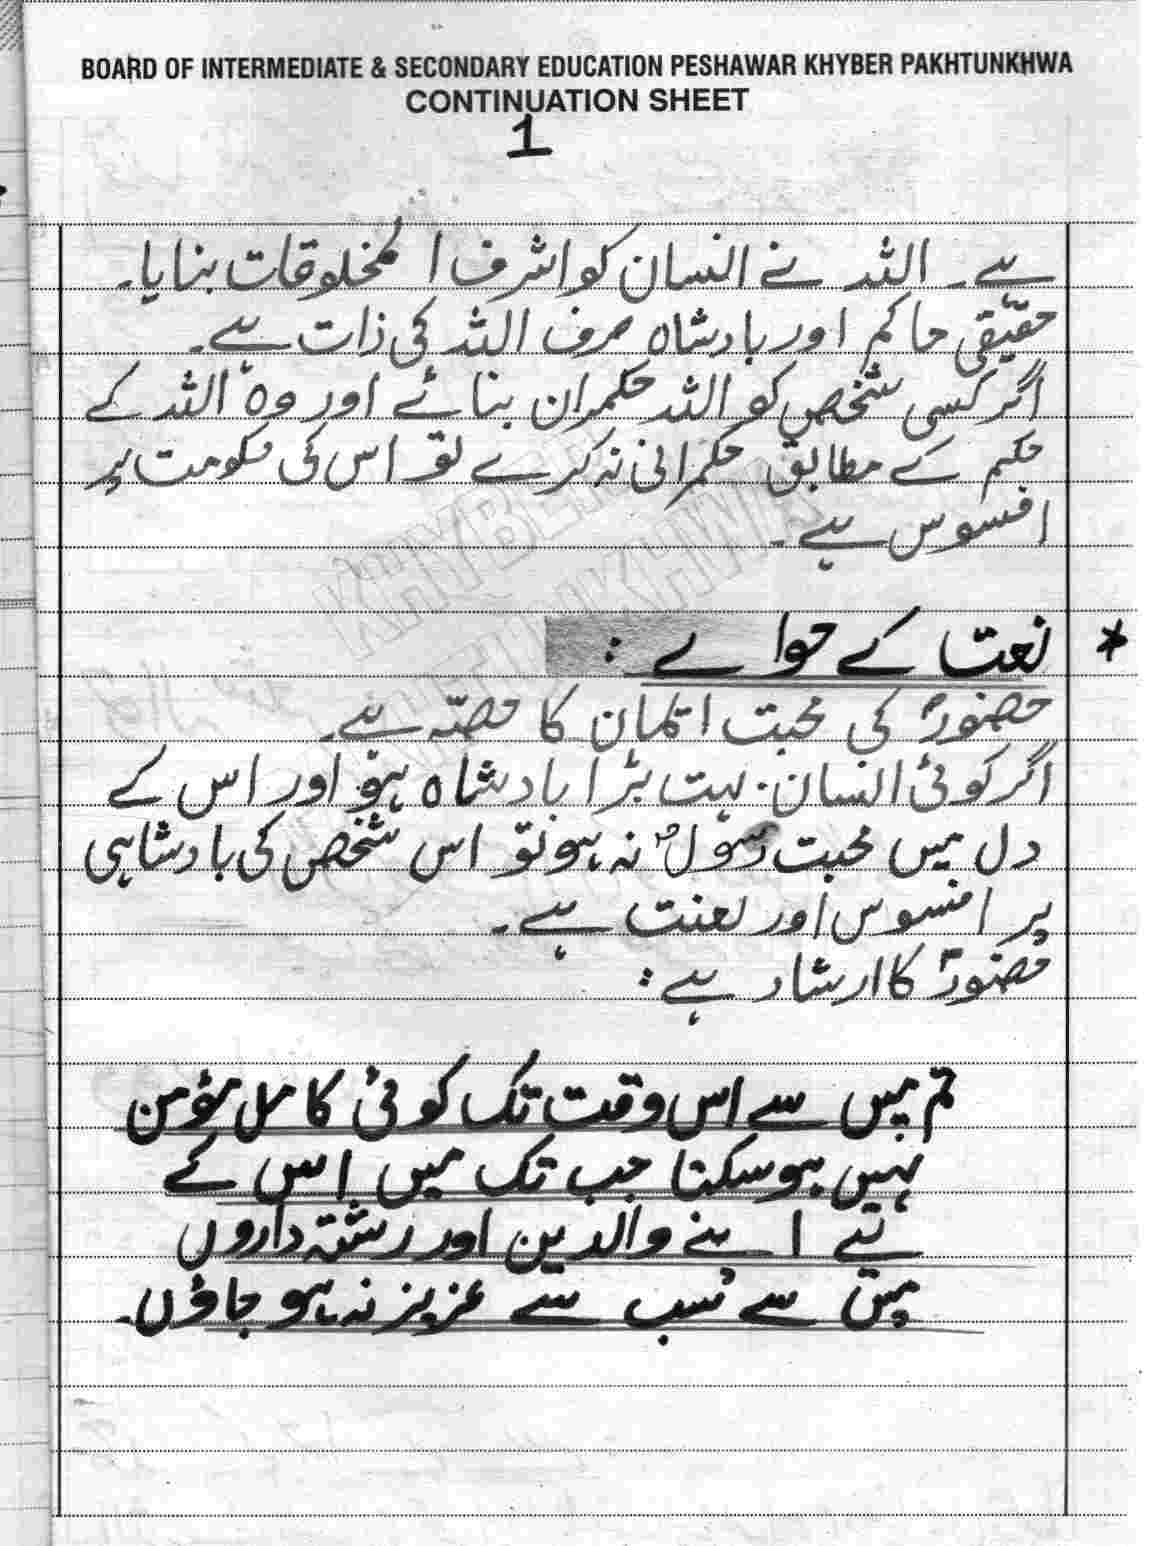 BOARD OF INTERMEDIATE & SECONDARY EDUCATION PESHAWAR KHYBER PAKHTUNKHWA
CONTINUATION SHEET
1
ہے۔ اللہ نے انسان کو اشرف المخلوقات بنایا۔
حقیقی حاکم اور بادشاہ صرف اللہ کی ذات ہے۔
اگر کسی شخص کو اللہ حکمران بنائے اور وہ اللہ کے
حکم کے مطابق حکمرانی نہ کرے تو اس کی حکومت پر
افسوس ہے۔
* نعت کے حوالے :
حضورؐ کی محبت ایمان کا حصّہ ہے۔
اگر کوئی انسان بہت بڑا بادشاہ ہو اور اس کے
دل میں محبت رسولؐ نہ ہو تو اس شخص کی بادشاہی
پر افسوس اور لعنت ہے۔
حضورؐ کا ارشاد ہے :
تم میں سے اس وقت تک کوئی کامل مؤمن
نہیں ہوسکتا جب تک میں اس کے
لیے اپنے والدین اور رشتہ داروں
میں سے سب سے عزیز نہ ہو جاؤں۔
KHYBER
PAKHTUNKHWA